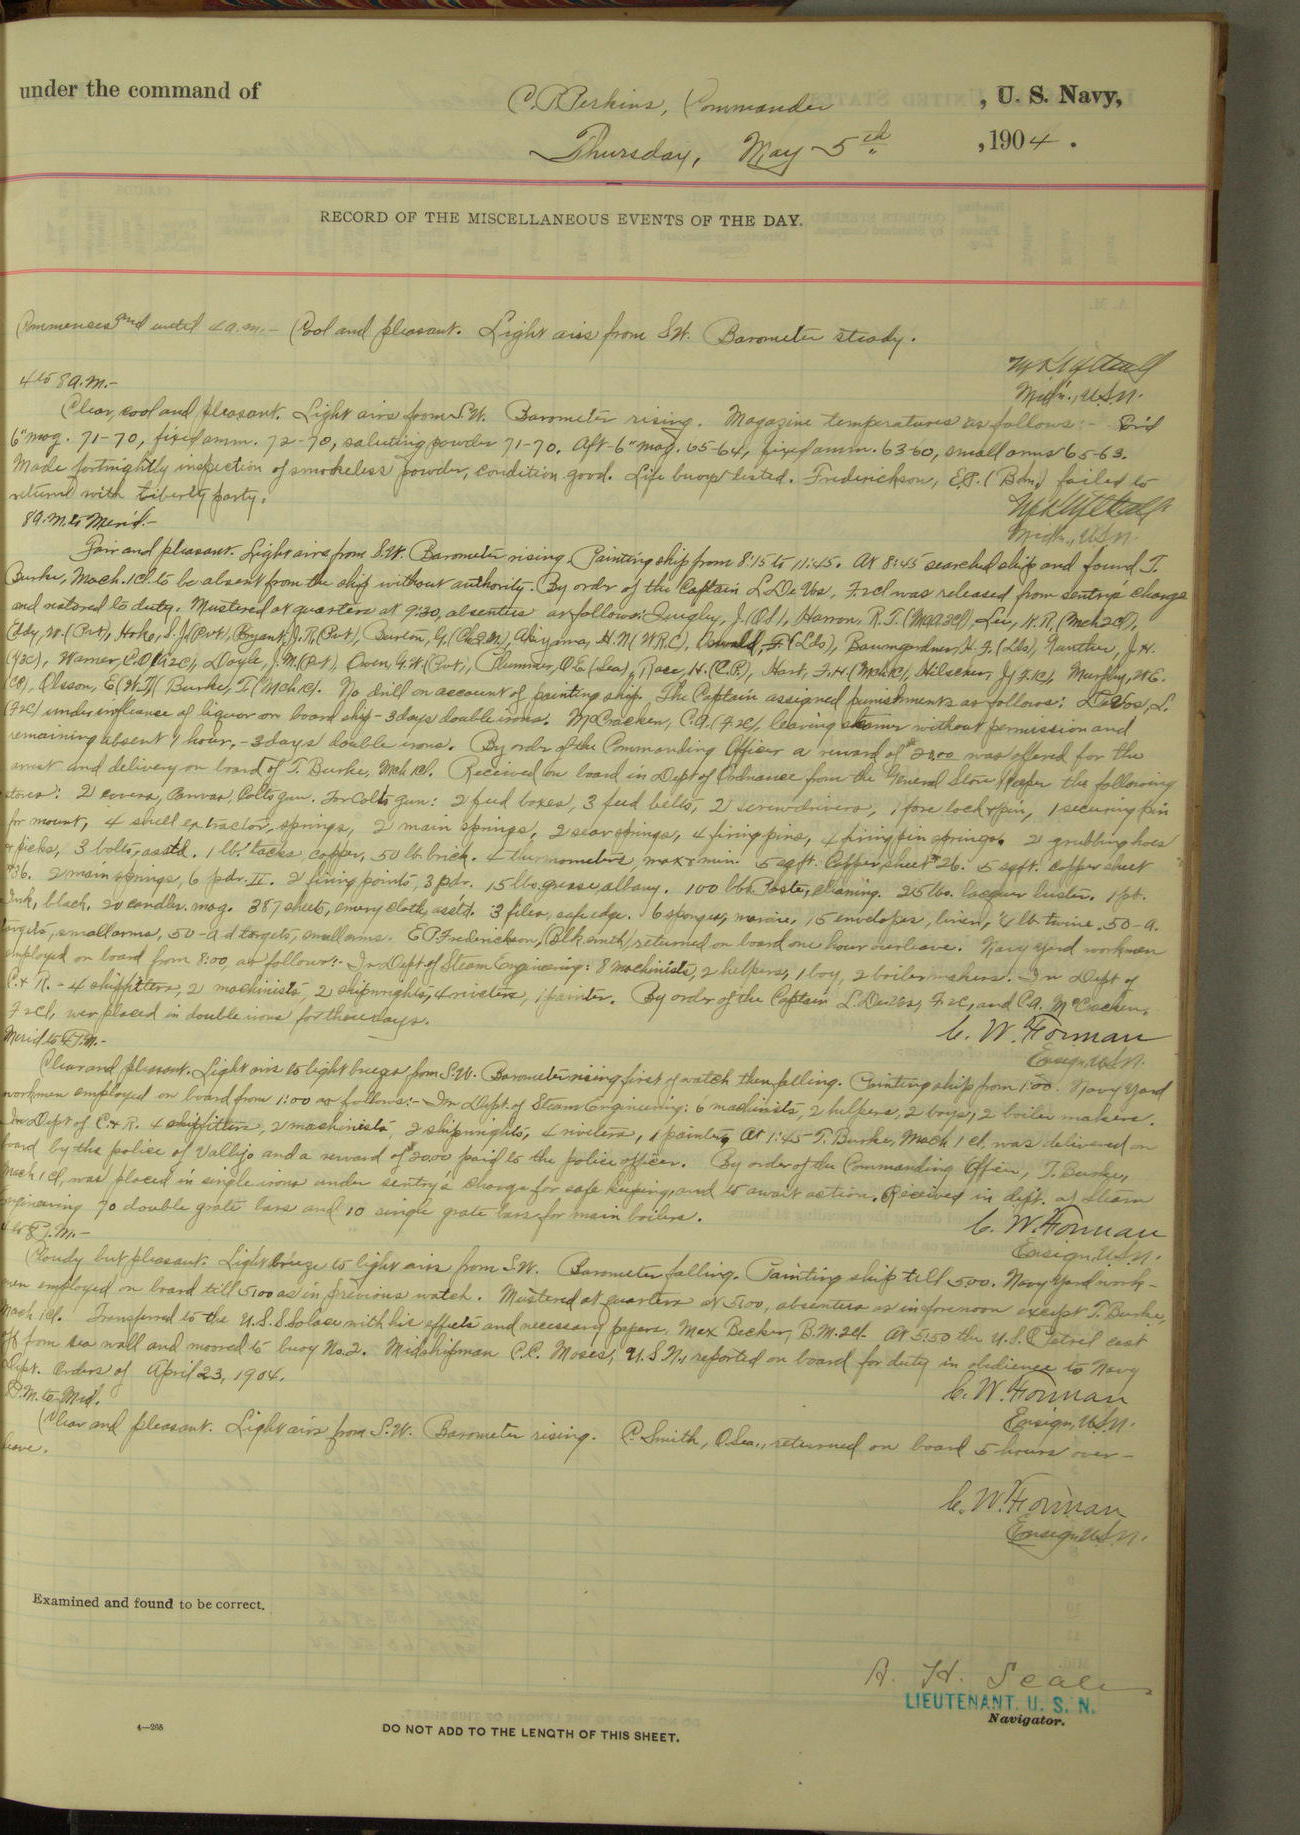 under the command of C. P. Perkins, Commander , U. S. Navy,
Thursday, May 5th , 1904.
RECORD OF THE MISCELLANEOUS EVENTS OF THE DAY.
Commences and until 4 a.m.- Cool and pleasant. Light airs from S.W. Barometer steady.
Mid'n., U.S.N.
4 to 8 A.M.-
Clear, cool and pleasant. Light airs from S.W. Barometer rising. Magazine temperatures as follows:- Fr'd
6" mag. 71-70, fixed amm. 72-70, saluting powder 71-70. Aft-6" mag. 65-64, fixed amm. 63-60, small arms 65-63.
Made fortnightly inspection of smokeless powder, condition good. Life buoys tested. Frederickson, E.P. (Bsm.) failed to
return with liberty party.
Midn., U.S.N.
8 A.M. to Merid.-
Fair and pleasant. Light airs from S.W. Barometer rising. Painting ship from 8:15 to 11:45. At 8:45 searched ship and found T.
Burke, Mach. 1cl. to be absent from the ship without authority. By order of the Captain L. De Vos, F.2cl was released from sentry's charge
and restored to duty. Mustered at quarters at 9:30, absentees as follows: Quigley, J. (O.S.), Harron, R.T. (M.A.3cl), Lee, W.R. (Mch.2cl),
Eddy, W. (Pvt), Hoke, S.J. (Pvt), Bryant, J.R. (Pvt), Burton, G. (Ch.Q.M.), Akiyama, H.N. (W.R.C.), Oswald, F. (Lds), Baumgardner, H.F. (Lds), Gunther, J.H.
(Y3C), Warner, C.O. (M2C), Doyle, J.M. (Pvt), Owen, G.W. (Pvt), Plummer, O.E. (Sea), Race, H. (C.P.), Hart, F.H. (Mch1C), Hilscher, J. (F.1C), Murphy, W.E.
(CP), Olsson, E. (W.T.) (Burke, T. (Mch1C). No drill on account of painting ship. The Captain assigned punishments as follows: DeVos, L.
(F2C) under influence of liquor on board ship - 3 days double irons. McCracken, C.A. (F2C), leaving steamer without permission and
remaining absent 1 hour, - 3 days double irons. By order of the Commanding Officer a reward of $20.00 was offered for the
arrest and delivery on board of T. Burke, Mch. 1cl. Received on board in Dept of Ordnance from the General Store Keeper the following
stores: 2 covers, canvas, Colts gun. For Colts gun: 2 feed boxes, 3 feed belts, 2 screwdrivers, 1 fore lock & pin, 1 securing pin
for mount, 4 shell extractor, springs, 2 main springs, 2 sear springs, 4 firing pins, 4 firing pin springs. 2 grubbing hoes
& picks, 3 bolts, ass'td. 1 lb. tacks, copper, 50 lb. brick. 4 thermometers max & min. 5 sq ft. Copper, sheet #26. 5 sq ft. copper sheet
#36. 2 main springs, 6 pdr. II. 2 firing points, 3 pdr. 15 lbs. grease albany. 100 lbs. Paste, cleaning. 25 lbs. lacquer luster. 1 pt.
Ink, black. 20 candles. mag. 387 sheets, emery cloth, ass'td. 3 files, safe edge. 6 sponges, marine. 15 envelopes, linen, 4 lb twine. 50-a.
targets, small arms, 50-a d targets, small arms. E.P. Frederickson, (Blksmith) returned on board one hour overleave. Navy yard workmen
employed on board from 8:00, as follows:- In Dept. of Steam Engineering: 8 machinists, 2 helpers, 1 boy, 2 boilermakers. In Dept of
C. & R. - 4 shipfitters, 2 machinists, 2 shipwrights, 4 riveters, 1 painter. By order of the Captain L. De Vos, F.2C, and C.A. McCracken,
F2cl, were placed in double irons for three days.
C. W. Forman
Ensign, U.S.N.
Merid to 4 P.M.-
Clear and pleasant. Light airs to light breezes, from S.W. Barometer rising first of watch then falling. Painting ship from 1:00. Navy yard
workmen employed on board from 1:00 as follows:- In Dept. of Steam Engineering: 6 machinists, 2 helpers, 2 boys, 2 boiler makers.
In Dept of C. & R. 4 shipfitters, 2 machinists, 2 shipwrights, 4 riveters, 1 painter. At 1:45 T. Burke, Mach. 1cl. was delivered on
board by the police of Vallejo and a reward of $20.00 paid to the police officer. By order of the Commanding Officer, T. Burke,
Mach 1cl, was placed in single irons under sentry's charge for safe keeping, and to await action. Received in dept. of Steam
Engineering 70 double grate bars and 10 single grate bars for main boilers.
C. W. Forman
Ensign, U.S.N.
4 to 8 P.M.-
Cloudy but pleasant. Light breeze to light airs from S.W. Barometer falling. Painting ship till 5:00. Navy yard work-
men employed on board till 5:00 as in previous watch. Mustered at quarters at 5:00, absentees as in forenoon except T. Burke,
Mach 1cl. Transferred to the U.S.S. Solace with his effects and necessary papers, Max Becker, B.M. 2cl. At 5:50 the U.S.S. Petrel cast
off from sea wall and moored to buoy No. 2. Midshipman C.C. Moses, U.S.N., reported on board for duty in obedience to Navy
Dept. Orders of April 23, 1904.
C. W. Forman
Ensign, U.S.N.
P.M. to Mid.
Clear and pleasant. Light airs from S.W. Barometer rising. C. Smith, O.Sea., returned on board 5 hours over-
leave.
C. W. Forman
Ensign, U.S.N.
Examined and found to be correct.
A. H. Scales
LIEUTENANT. U. S. N.
Navigator.
4—268
DO NOT ADD TO THE LENGTH OF THIS SHEET.